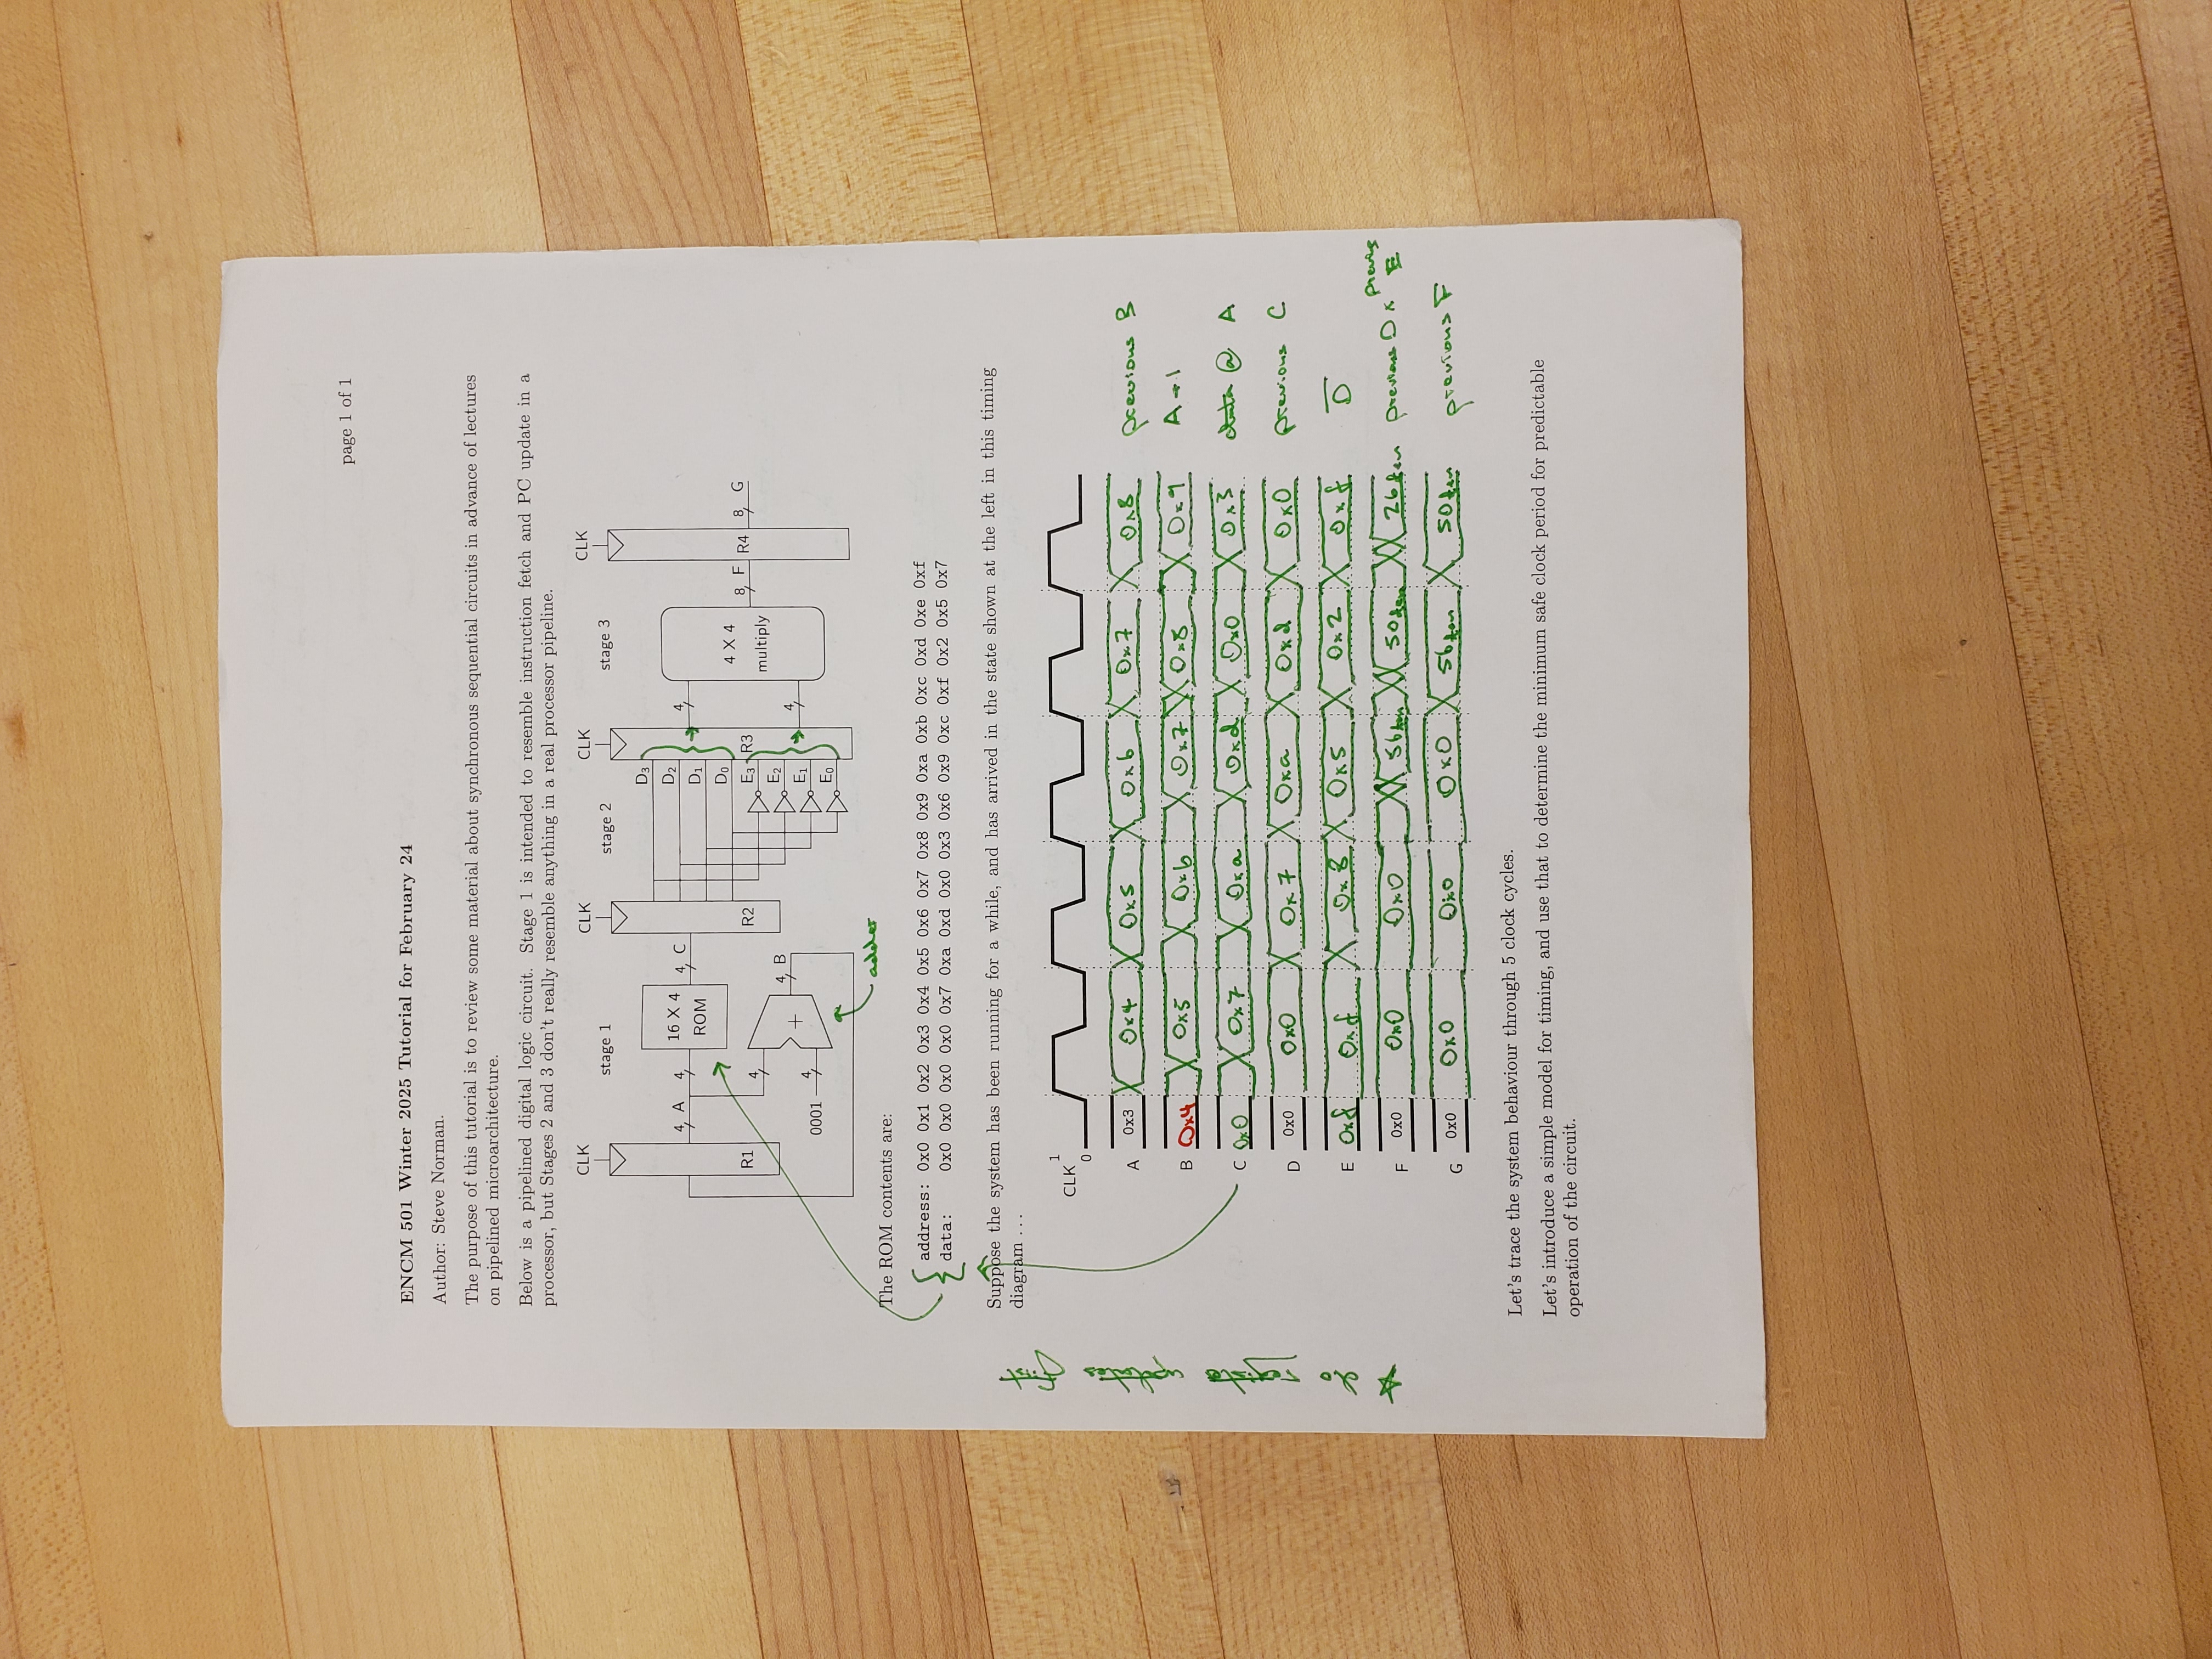 page 1 of 1
ENCM 501 Winter 2025 Tutorial for February 24
Author: Steve Norman.
The purpose of this tutorial is to review some material about synchronous sequential circuits in advance of lectures
on pipelined microarchitecture.
Below is a pipelined digital logic circuit. Stage 1 is intended to resemble instruction fetch and PC update in a
processor, but Stages 2 and 3 don't really resemble anything in a real processor pipeline.
CLK CLK CLK CLK
stage 1 stage 2 stage 3
D₃
D₂
D₁
D₀
E₃
E₂
E₁
E₀
4 A 4
16 X 4
ROM
4 C
R1
4
4 B
+
0001
4
R2
R3
4
4
4 X 4
multiply
8 F
R4
8 G
adder
The ROM contents are:
address: 0x0 0x1 0x2 0x3 0x4 0x5 0x6 0x7 0x8 0x9 0xa 0xb 0xc 0xd 0xe 0xf
data: 0x0 0x0 0x0 0x0 0x7 0xa 0xd 0x0 0x3 0x6 0x9 0xc 0xf 0x2 0x5 0x7
Suppose the system has been running for a while, and has arrived in the state shown at the left in this timing
diagram ...
do register updates first
CLK 1
0
A 0x3 0x4 0x5 0x6 0x7 0x8 previous B
B 0x4 0x5 0x6 0x7 0x8 0x9 A+1
C 0x0 0x7 0xa 0xd 0x0 0x3 data @ A
D 0x0 0x0 0x7 0xa 0xd 0x0 previous C
E 0xf 0xf 0x8 0x5 0x2 0xf D̅
F 0x0 0x0 0x0 56ten 50ten 26ten previous D x previous E
G 0x0 0x0 0x0 0x0 56ten 50ten previous F
Let's trace the system behaviour through 5 clock cycles.
Let's introduce a simple model for timing, and use that to determine the minimum safe clock period for predictable
operation of the circuit.